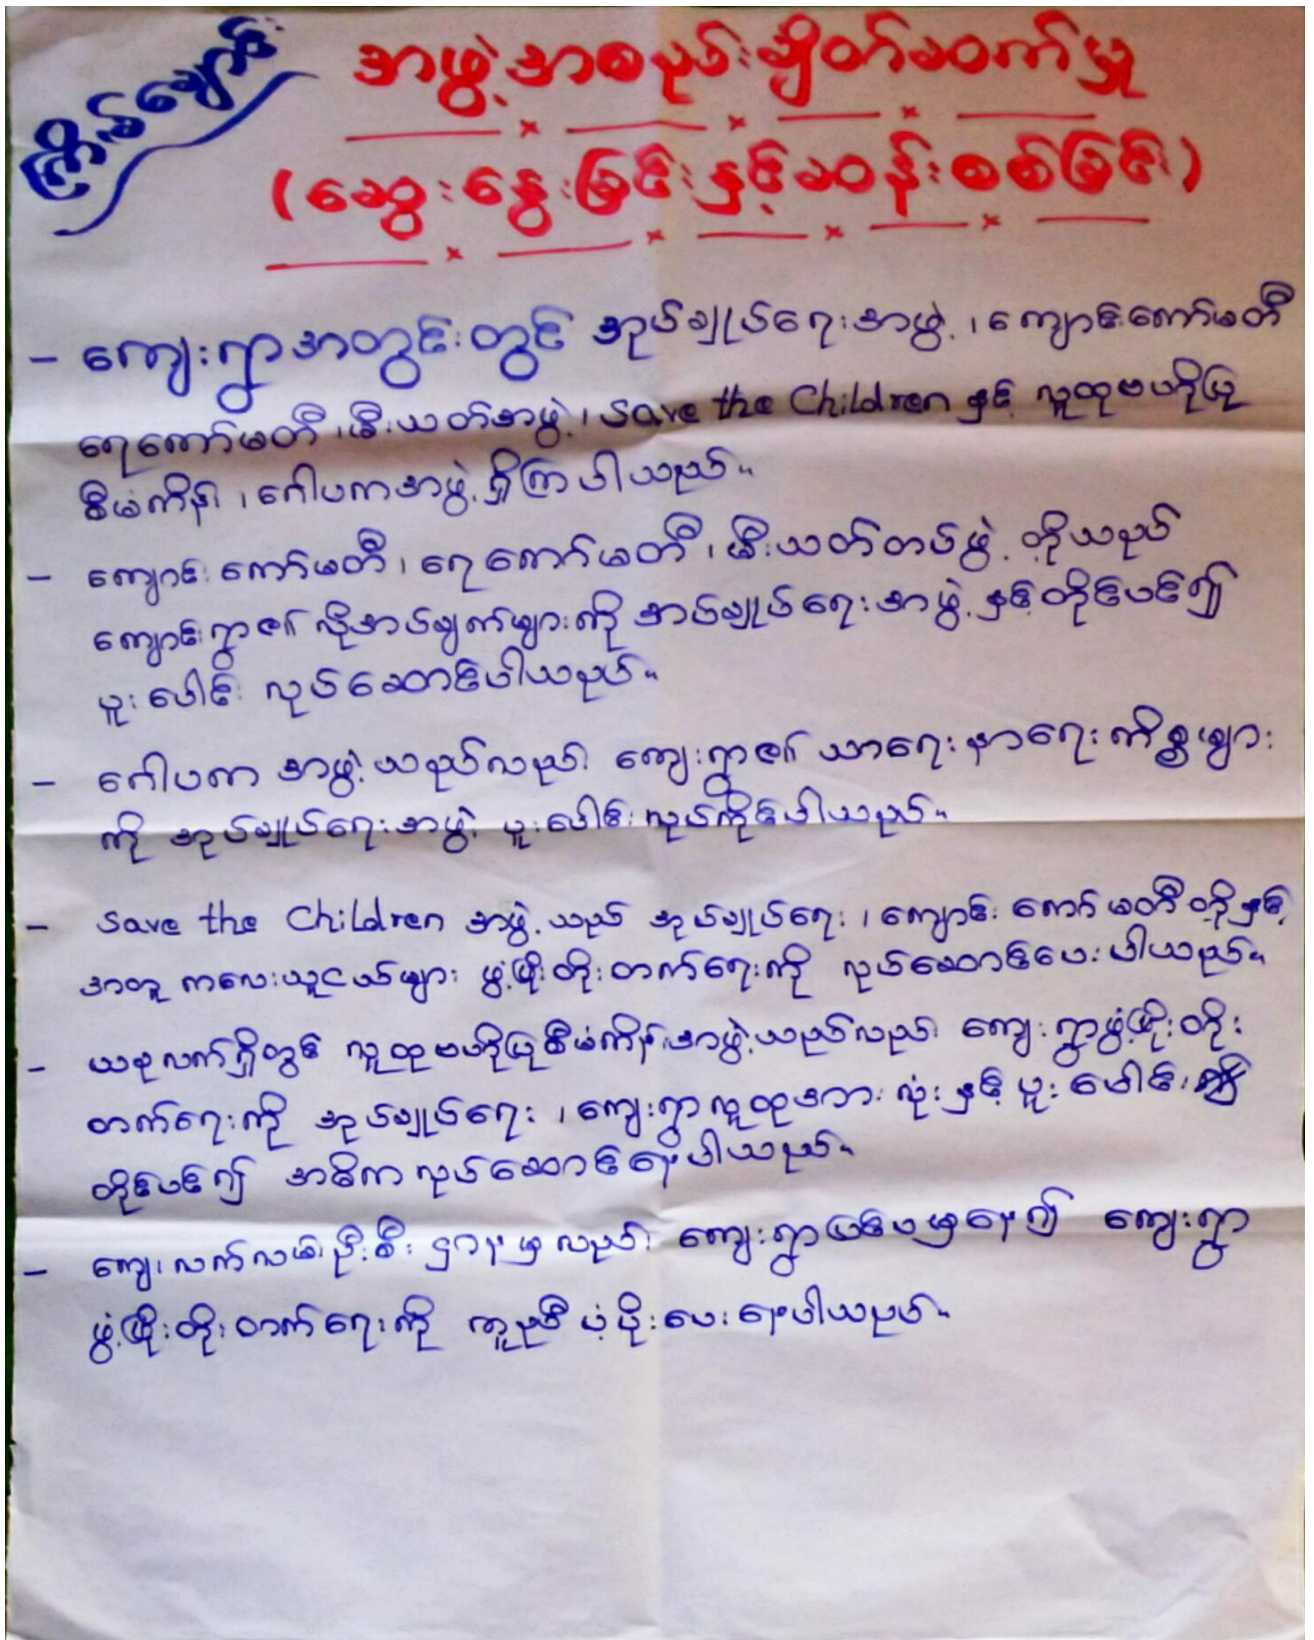 ကြိမ်ချောင်း
အဖွဲ့အစည်းချိတ်ဆက်မှု
(ဆွေးနွေးခြင်းနှင့်ဆန်းစစ်ခြင်း)
- ကျေးရွာအတွင်းတွင် အုပ်ချုပ်ရေးအဖွဲ့၊ ကျောင်းကော်မတီ
ရေကော်မတီ၊ မီးသတ်အဖွဲ့၊ Save the Children နှင့် လူထုဗဟိုပြု
စီမံကိန်း၊ ဂေါပကအဖွဲ့ ရှိကြပါသည်။
- ကျောင်းကော်မတီ၊ ရေကော်မတီ၊ မီးသတ်တပ်ဖွဲ့ တို့သည်
ကျောင်းရွာ၏ လိုအပ်ချက်များကို အုပ်ချုပ်ရေးအဖွဲ့နှင့်တိုင်ပင်၍
ပူးပေါင်း လုပ်ဆောင်ပါသည်။
- ဂေါပက အဖွဲ့သည်လည်း ကျေးရွာ၏ သာရေးနာရေးကိစ္စများ
ကို အုပ်ချုပ်ရေးအဖွဲ့ ပူးပေါင်းလုပ်ကိုင်ပါသည်။
- Save the Children အဖွဲ့သည် အုပ်ချုပ်ရေး၊ ကျောင်းကော်မတီတို့နှင့်
အတူ ကလေးသူငယ်များ ဖွံ့ဖြိုးတိုးတက်ရေးကို လုပ်ဆောင်ပေးပါသည်။
- ယခုလက်ရှိတွင် လူထုဗဟိုပြုစီမံကိန်းအဖွဲ့သည်လည်း ကျေးရွာဖွံ့ဖြိုးတိုး
တက်ရေးကို အုပ်ချုပ်ရေး၊ ကျေးရွာလူထုအားလုံးနှင့် ပူးပေါင်း
တိုင်ပင်၍ အဓိကလုပ်ဆောင်နေပါသည်။
- ကျေးလက်လမ်းဦးစီးဌာနမှလည်း ကျေးရွာပြင်ပမှနေ၍ ကျေးရွာ
ဖွံ့ဖြိုးတိုးတက်ရေးကို ကူညီပံ့ပိုးပေးနေပါသည်။